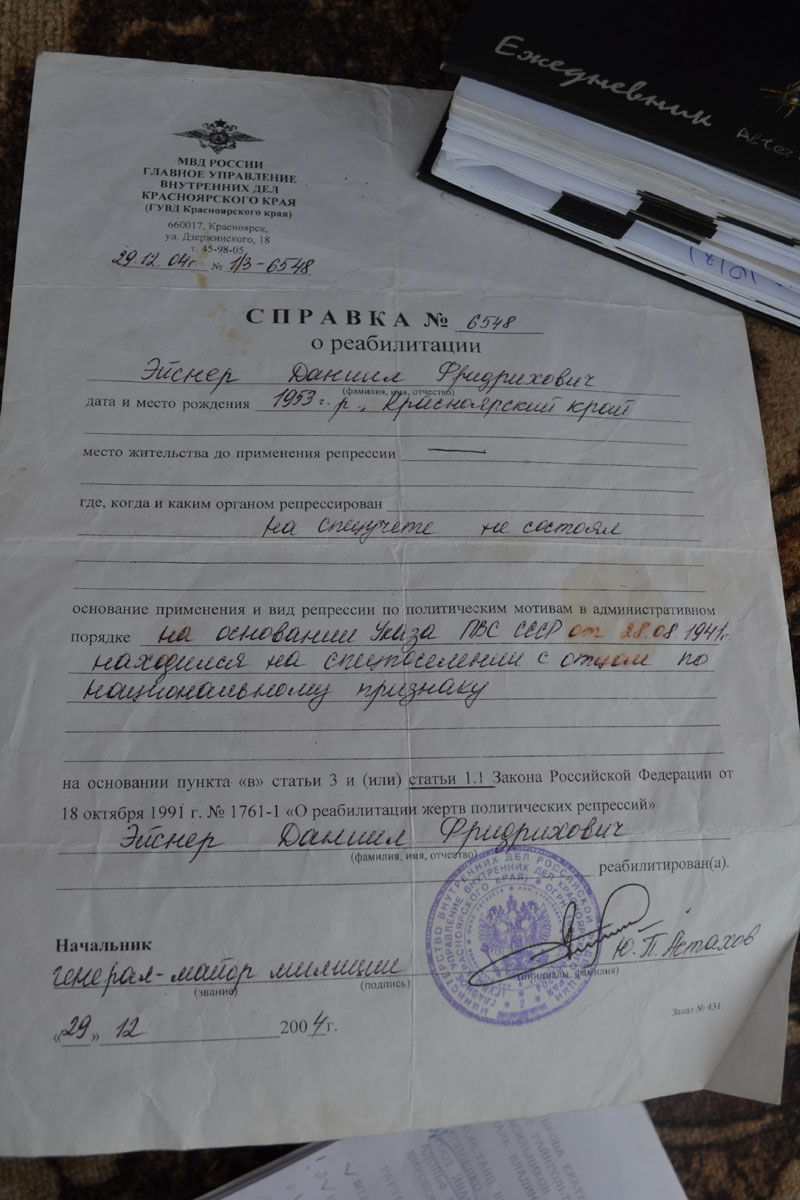 Ежедневник
МВД РОССИИ
ГЛАВНОЕ УПРАВЛЕНИЕ
ВНУТРЕННИХ ДЕЛ
КРАСНОЯРСКОГО КРАЯ
(ГУВД Красноярского края)
660017, Красноярск,
ул. Дзержинского, 18
т. 45-98-05
29.12.04г. № 1/3-6548
СПРАВКА № 6548
о реабилитации
Эйснер Даниил Фридрихович
(фамилия, имя, отчество)
дата и место рождения 1953 г. р., Красноярский край
место жительства до применения репрессии —
где, когда и каким органом репрессирован
на спецучете не состоял
основание применения и вид репрессии по политическим мотивам в административном
порядке на основании Указа ПВС СССР от 28.08.1941г.
находился на спецпоселении с отцом по
национальному признаку
на основании пункта «в» статьи 3 и (или) статьи 1.1 Закона Российской Федерации от
18 октября 1991 г. № 1761-1 «О реабилитации жертв политических репрессий»
Эйснер Даниил Фридрихович
(фамилия, имя, отчество)
реабилитирован(а).
Начальник
генерал-майор милиции Ю.П. Астахов
(звание) (подпись) (инициалы, фамилия)
«29» 12 2004г.
Заказ № 431.